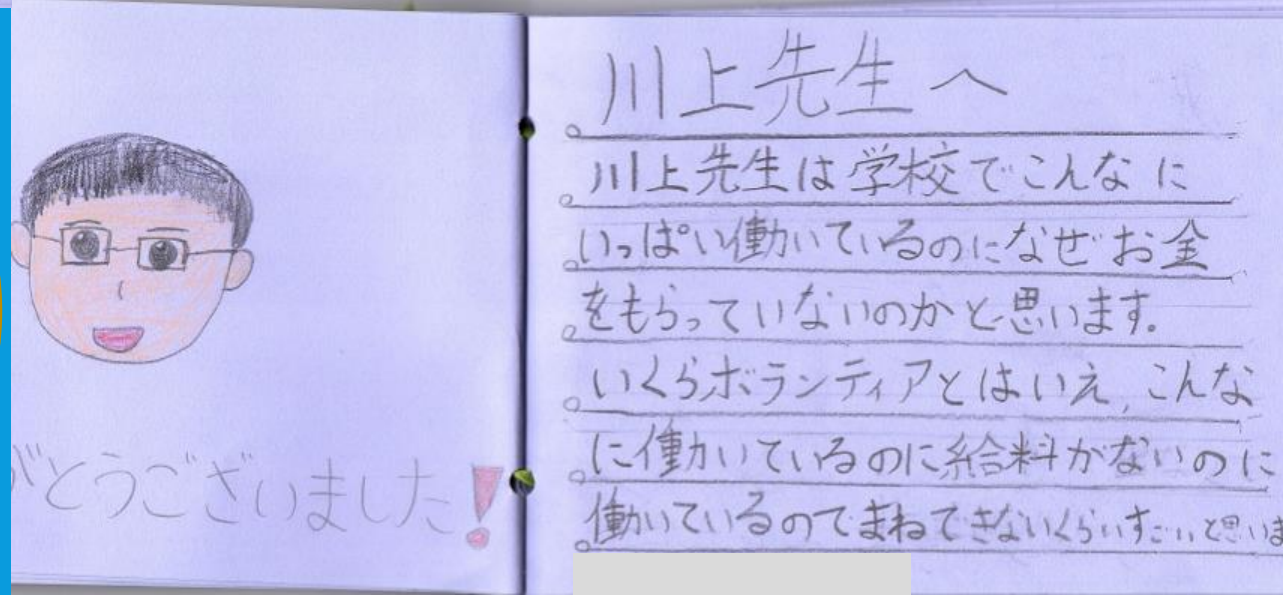 がとうございました!
川上先生へ
川上先生は学校でこんなに
いっぱい働いているのになぜお金
をもらっていないのかと思います。
いくらボランティアとはいえ、こんな
に働いているのに給料がないのに
働いているのでまねできないくらいすごいと思いま